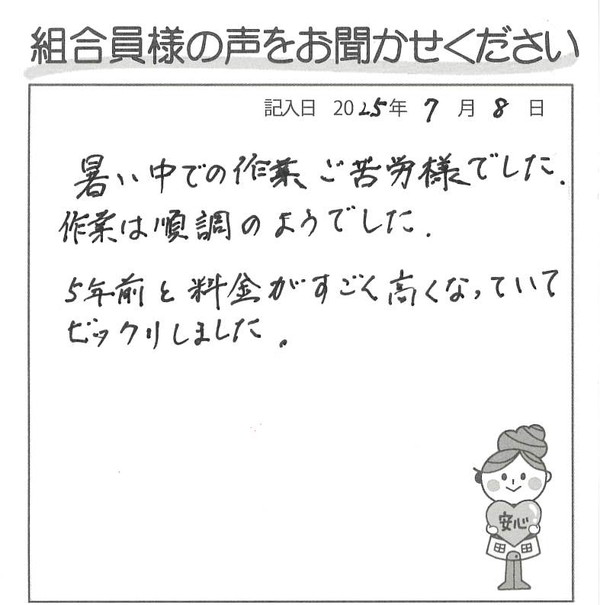 組合員様の声をお聞かせください
記入日 2025年 7月 8日
暑い中での作業、ご苦労様でした.
作業は順調のようでした.
5年前と料金がすごく高くなっていて
ビックリしました。
安心